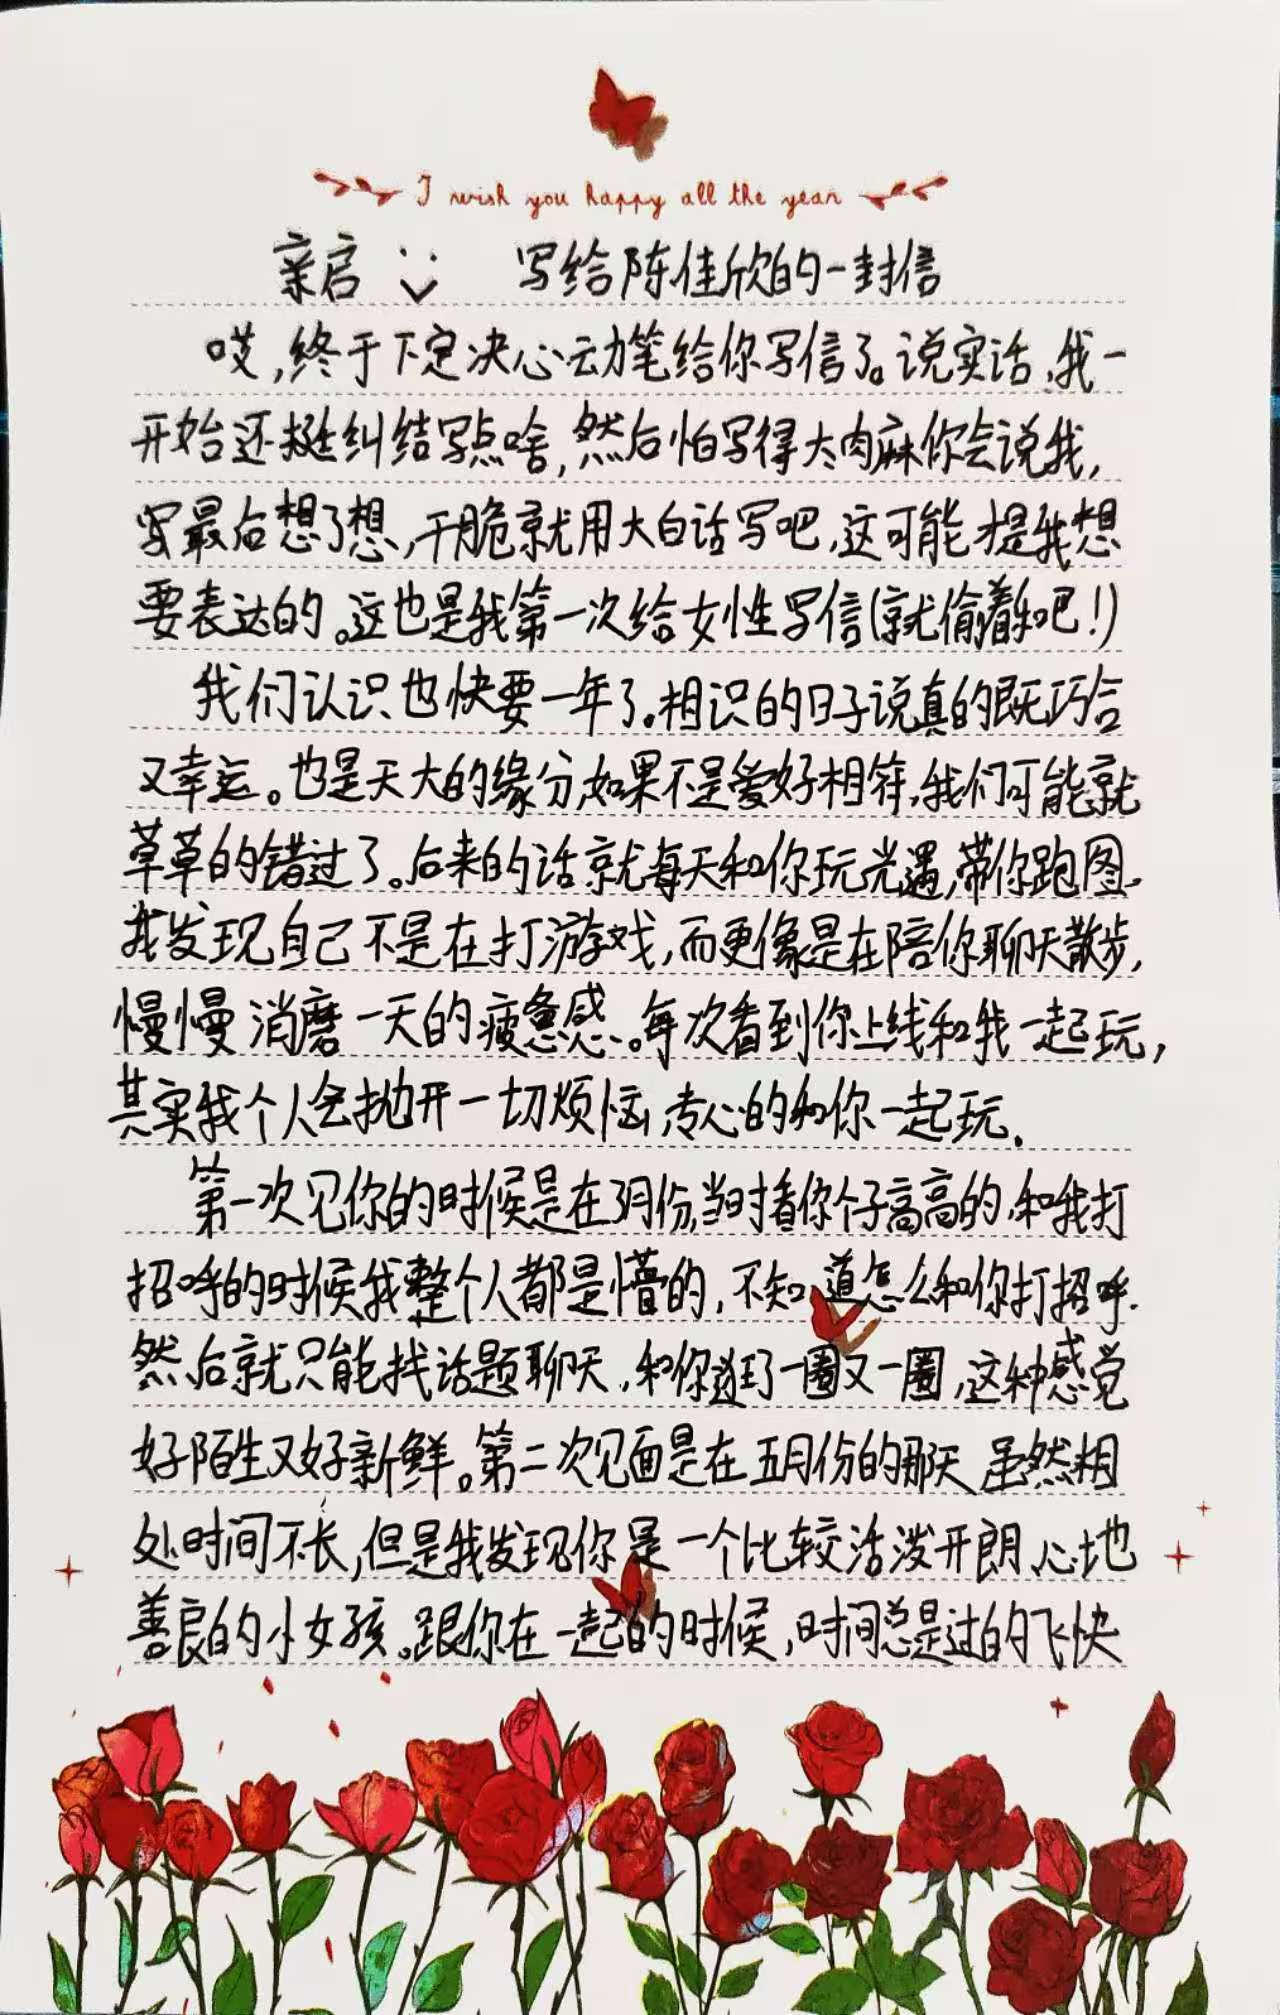 I wish you happy all the year
亲启 写给陈佳欣的一封信
哎,终于下定决心动笔给你写信了。说实话,我一
开始还挺纠结写点啥,然后怕写得太肉麻你会说我,
写最后想了想,干脆就用大白话写吧,这可能才是我想
要表达的。这也是我第一次给女性写信(就偷着乐吧!)
我们认识也快要一年了。相识的日子说真的既巧合
又幸运。也是天大的缘分,如果不是爱好相符,我们可能就
草草的错过了。后来的话就每天和你玩光遇,带你跑图.
我发现自己不是在打游戏,而更像是在陪你聊天散步,
慢慢消磨一天的疲惫感。每次看到你上线和我一起玩,
其实我个人会抛开一切烦恼,专心的和你一起玩.
第一次见你的时候是在3月份,当时看你个子高高的,和我打
招呼的时候我整个人都是懵的,不知道怎么和你打招呼.
然后就只能找话题聊天,和你逛了一圈又一圈,这种感觉
好陌生又好新鲜。第二次见面是在五月份的那天,虽然相
处时间不长,但是我发现你是一个比较活泼开朗、心地
善良的小女孩。跟你在一起的时候,时间总是过的飞快